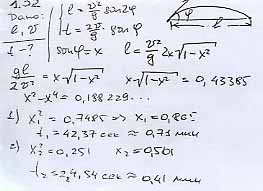 1.32
Dano: { l = v²/g sin2φ
l, v { t = 2v/g sinφ
t - ? sinφ = x l = v²/g 2x√1-x²
gl/2v² = x√1-x² x√1-x² = 0,43385
x² - x⁴ = 0,188229...
1) x₁² = 0,7485 => x₁ = 0,865
t₁ = 42,37 сек ≈ 0,71 мин
2) x₂² = 0,251 x₂ = 0,501
t₂ = 24,54 сек ≈ 0,41 мин
φ
l